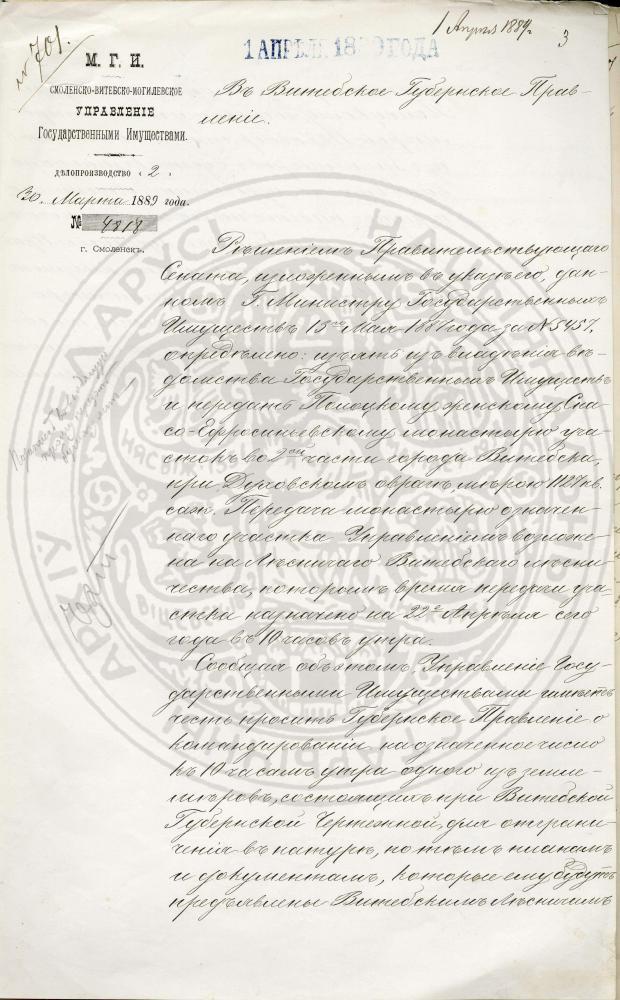 № 701.
1 Апреля 1889 г.
3
1 АПРЕЛЯ 1889 ГОДА
М. Г. И.
СМОЛЕНСКО-ВИТЕБСКО-МОГИЛЕВСКОЕ
УПРАВЛЕНІЕ
Государственными Имуществами.
ДѢЛОПРОИЗВОДСТВО „ 2 „
30 Марта 1889 года.
№ 4818
г. Смоленскъ.
Въ Витебское Губернское Прав-
леніе.
Рѣшеніемъ Правительствующаго
Сената, изложеннымъ въ указѣ его, дан-
номъ Г. Министру Государственныхъ
Имуществъ 15го Мая 1887 года за № 5457,
опредѣлено: изъять изъ владѣнія вѣ-
домства Государственныхъ Имуществъ
и передать Полоцкому женскому Спа-
со-Ефросиньевскому монастырю уча-
стокъ во 2ой части города Витебска,
при Духовскомъ оврагѣ, мѣрою 1127 кв.
саж. Передача монастырю означен-
наго участка Управленіемъ возложе-
на на Лѣсничаго Витебскаго лѣсни-
чества, которымъ время передачи уча-
стка назначено на 22е Апрѣля сего
года въ 10 часовъ утра.
Сообщая объ этомъ, Управленіе Госу-
дарственными Имуществами имѣетъ
честь просить Губернское Правленіе о
командированіи на означенное число
къ 10 часамъ утра одного изъ земле-
мѣровъ, состоящихъ при Витебской
Губернской Чертежной, для отграни-
ченія въ натурѣ, по тѣмъ планамъ
и документамъ, которые ему будутъ
предъявлены Витебскимъ Лѣсничимъ